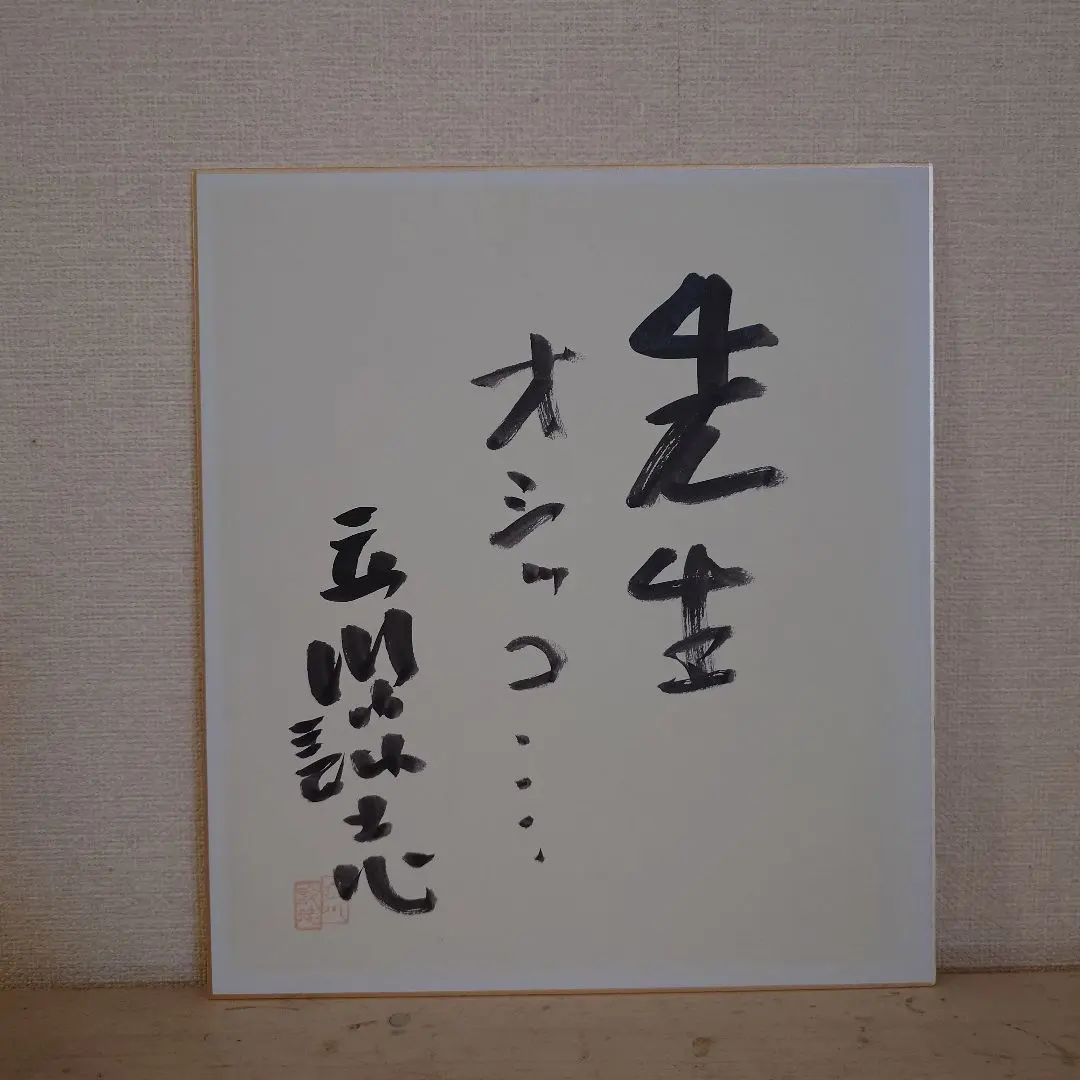 先生
オシッコ・・・・
立川談志